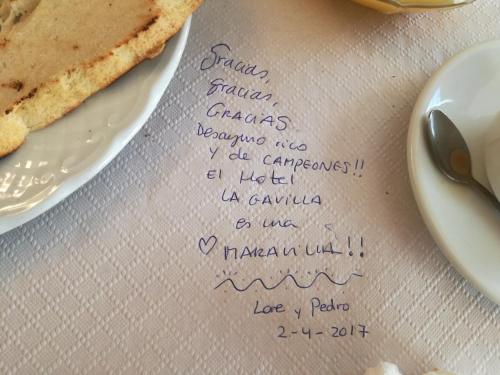 Gracias,
gracias,
GRACIAS
Desayuno rico
y de CAMPEONES!!
El Hotel
LA GAVILLA
es una
♡ MARAVILLA!!
Lore y Pedro
2-4-2017